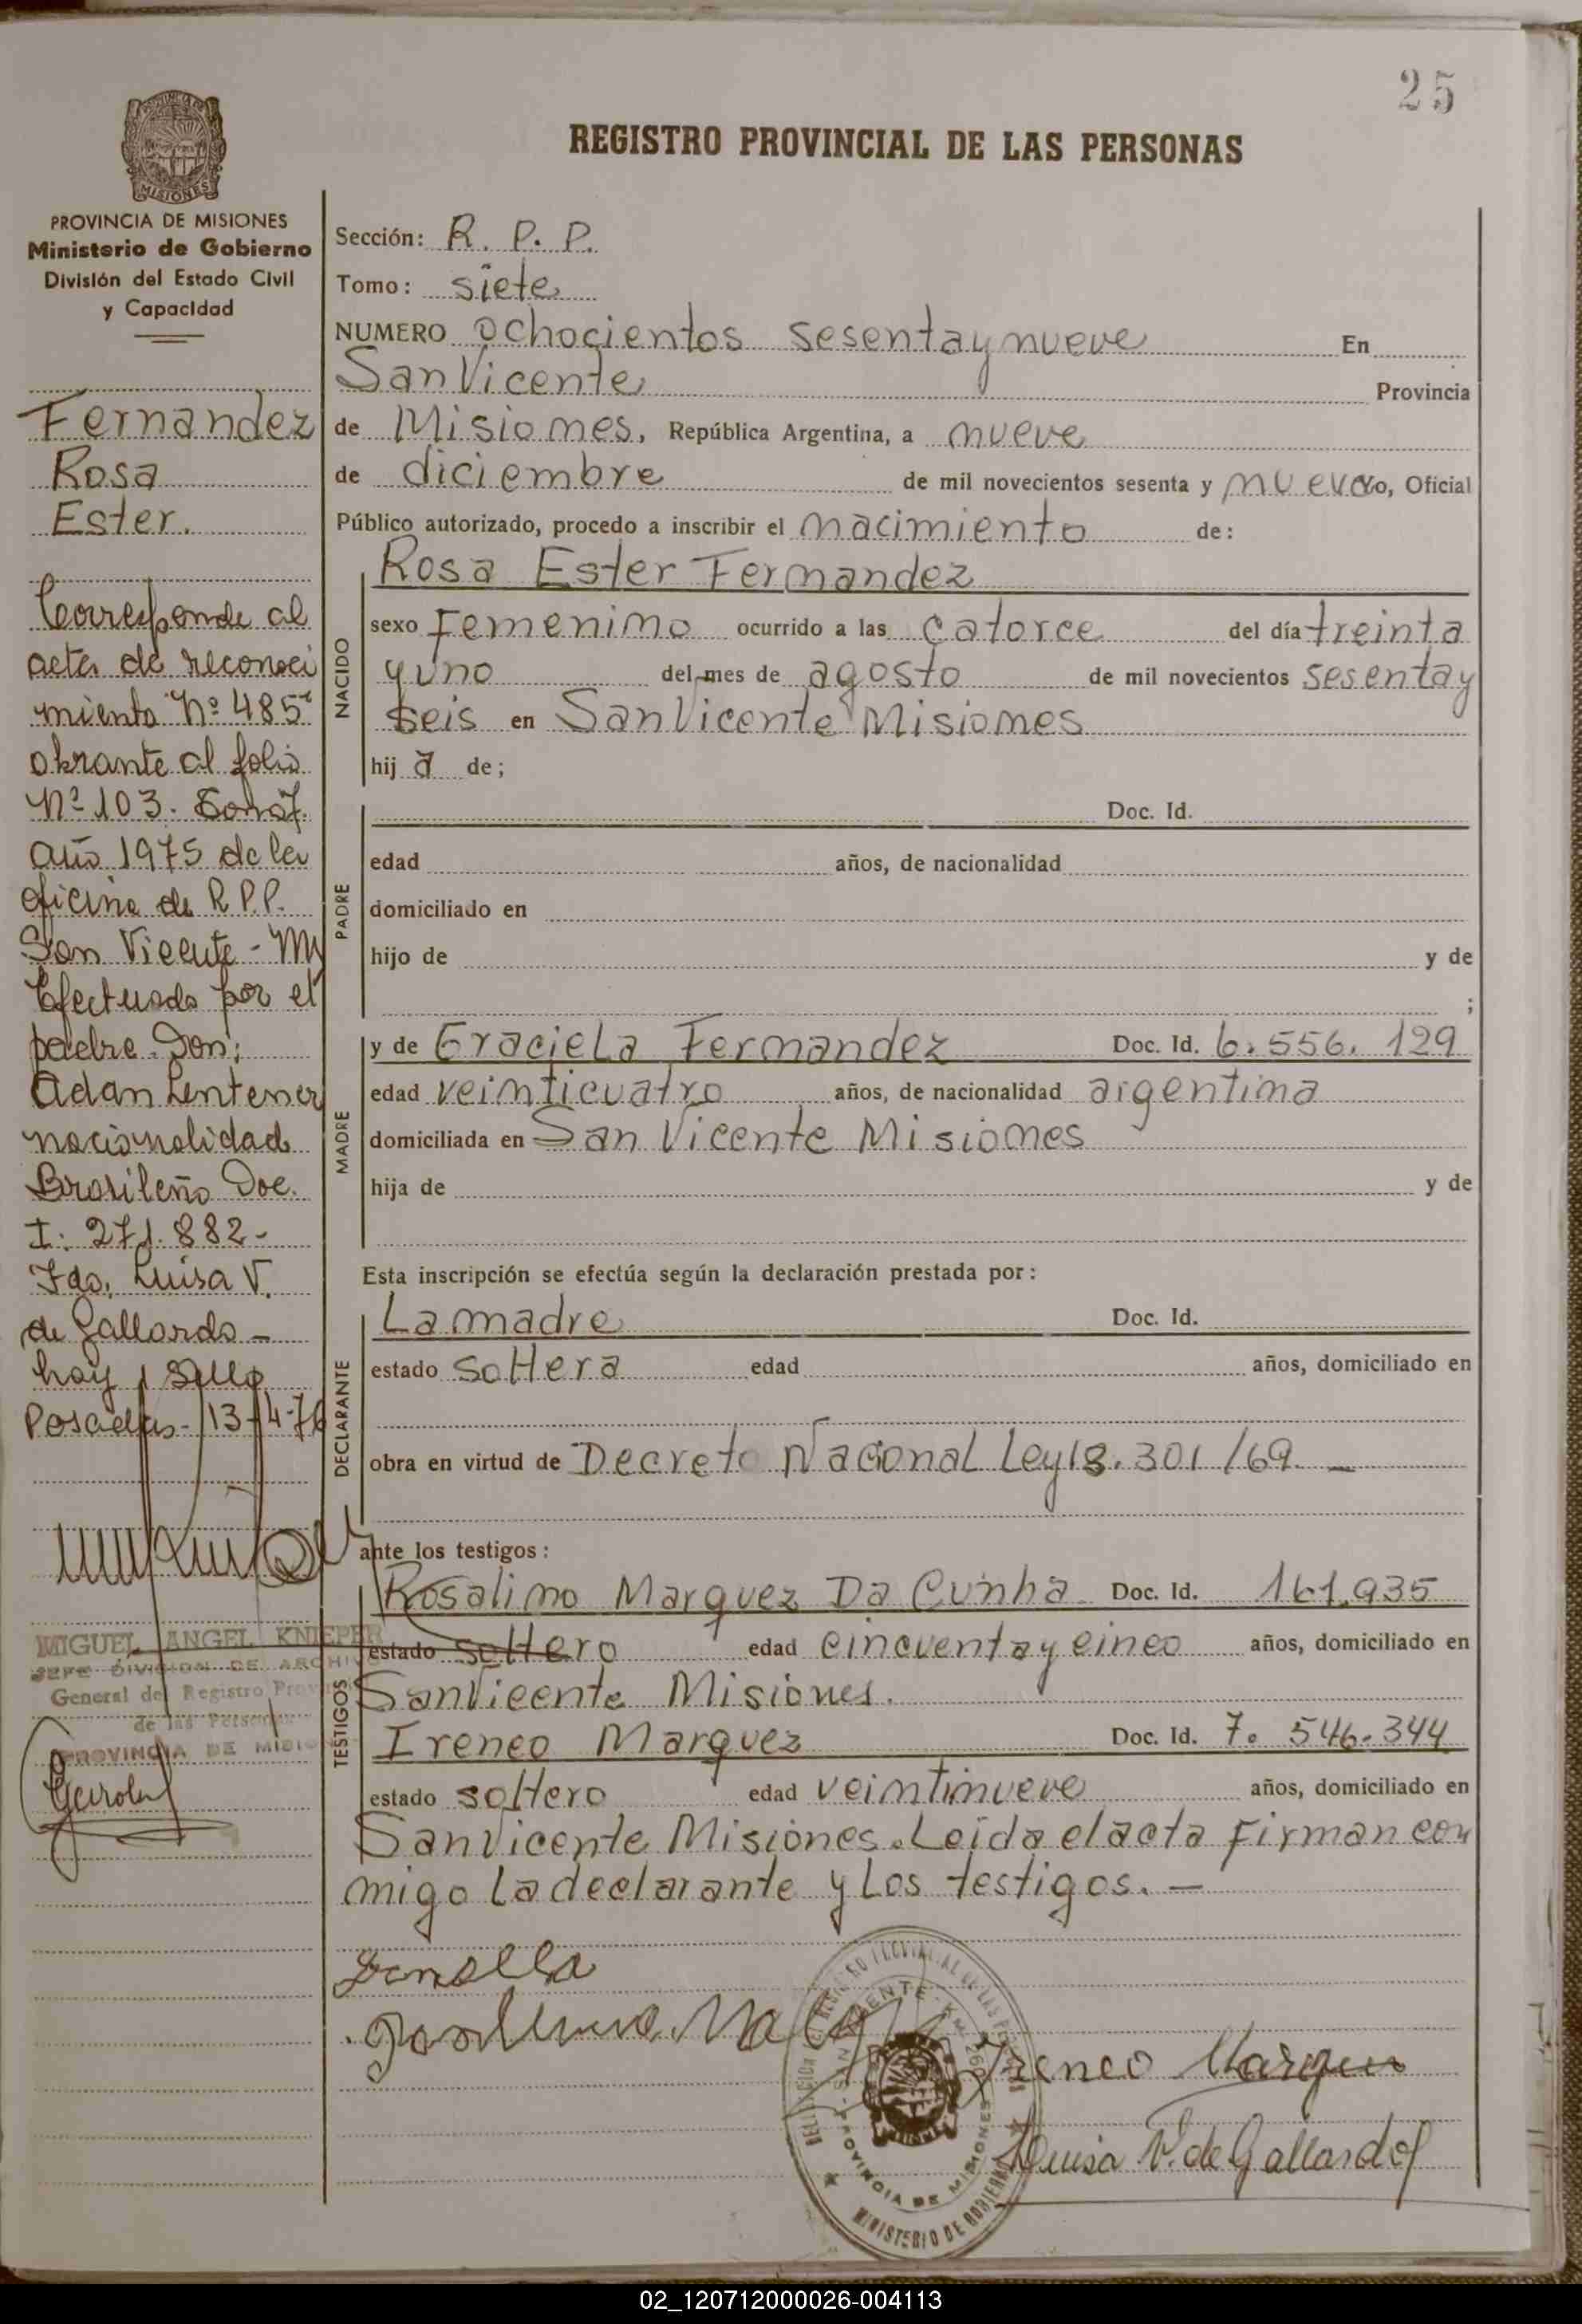 25
REGISTRO PROVINCIAL DE LAS PERSONAS
PROVINCIA DE MISIONES
Ministerio de Gobierno
División del Estado Civil
y Capacidad
Fernandez
Rosa
Ester.
Corresponde al
acta de reconoci
miento Nº 485
obrante al folio
Nº 103. Tomo 7.
año 1975 de la
oficina de R.P.P.
San Vicente - Mnes
Efectuado por el
padre. Don:
Adan Lentener
nacionalidad
Brasileño Doc.
I: 271.882-
Fdo. Luisa V.
de Gallardo -
hay 1 sello
Posadas - 13-4-76
MIGUEL ANGEL KNIEPER
JEFE DIVISION DE ARCHIVO
General del Registro Prov
de las Personas
PROVINCIA DE MISIO
Sección: R. P. P.
Tomo: siete
NUMERO ochocientos sesenta y nueve En
San Vicente Provincia
de Misiones, República Argentina, a nueve
de diciembre de mil novecientos sesenta y nueve yo, Oficial
Público autorizado, procedo a inscribir el nacimiento de:
NACIDO
Rosa Ester Fernandez
sexo Femenino ocurrido a las catorce del día treinta
y uno del mes de agosto de mil novecientos sesenta y
seis en San Vicente Misiones
hij a de;
PADRE
Doc. Id.
edad años, de nacionalidad
domiciliado en
hijo de y de
;
MADRE
y de Graciela Fernandez Doc. Id. 6.556.129
edad veinticuatro años, de nacionalidad argentina
domiciliada en San Vicente Misiones
hija de y de
Esta inscripción se efectúa según la declaración prestada por:
DECLARANTE
La madre Doc. Id.
estado soltera edad años, domiciliado en
obra en virtud de Decreto Nacional Ley 18.301/69. -
ante los testigos:
TESTIGOS
Rosalino Marquez Da Cunha Doc. Id. 161.935
estado soltero edad cincuenta y cinco años, domiciliado en
San Vicente Misiones.
Ireneo Marquez Doc. Id. 7.546.344
estado soltero edad veintinueve años, domiciliado en
San Vicente Misiones. Leida el acta Firman con
migo la declarante y los testigos. -
Ireneo Marquez
Luisa V. de Gallardo
SAN VICENTE - Km. 260
PROVINCIA DE MISIONES
MINISTERIO DE GOBIERNO
02_120712000026-004113